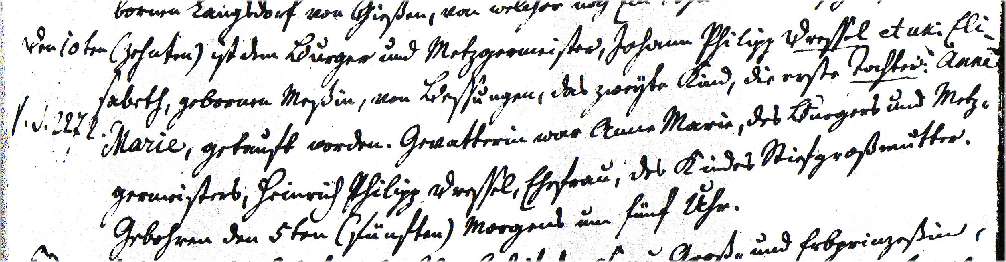 bornen Langsdorf von Gießen, von welcher noch
den 10ten (zehnten) ist dem Burger und Metzgermeister, Johann Philipp Dressel et ux: Eli-
sabeth, gebornen Meßin, von Bessungen, das zweyte Kind, die erste Tochter: Anne
Marie, getauft worden. Gevatterin war Anne Marie, des Burgers und Metz-
germeisters, Heinrich Philipp Dressel, Ehefrau, des Kindes Stiefgroßmutter.
Gebohren den 5ten (fünften) Morgens um fünf Uhr.
Groß- und Erbprinzeßin,